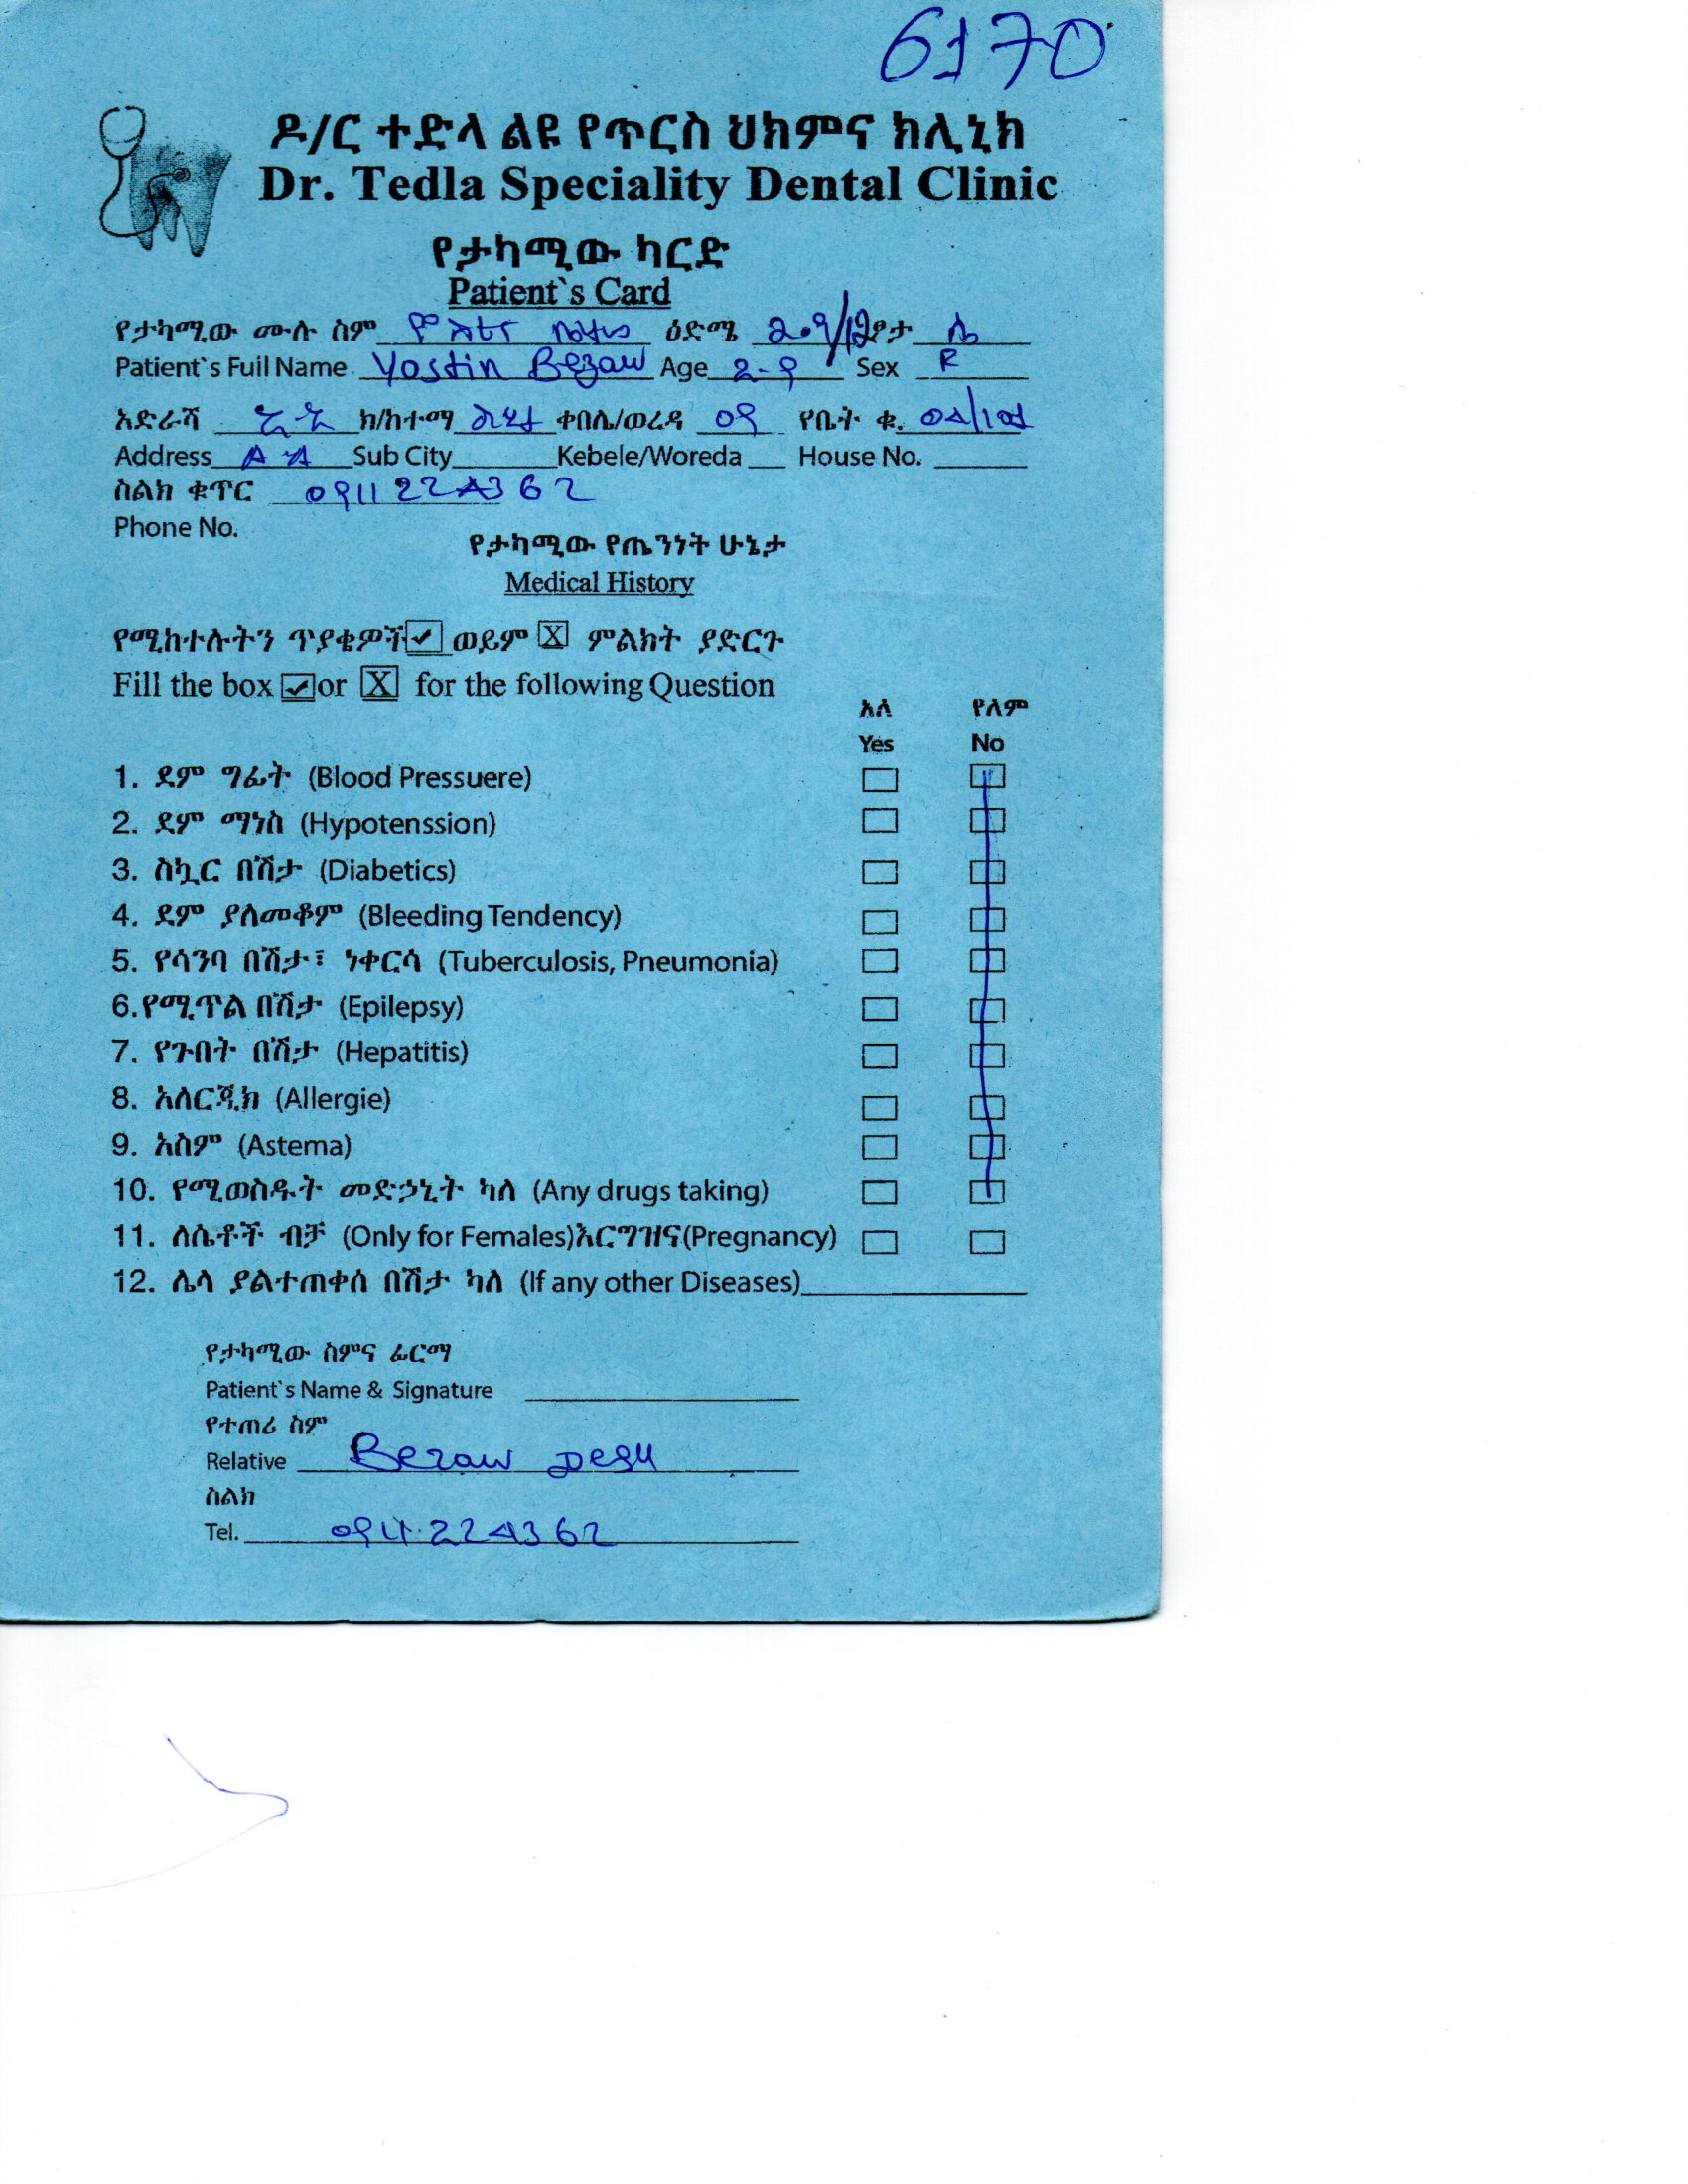 6170
ዶ/ር ተድላ ልዩ የጥርስ ህክምና ክሊኒክ
Dr. Tedla Speciality Dental Clinic
የታካሚው ካርድ
Patient`s Card
የታካሚው ሙሉ ስም ዕድሜ 2.9/12 ፆታ ሴ
Patient`s Full Name Yostin Bezaw Age 2-9 Sex F
አድራሻ አ.አ ክ/ከተማ ቀበሌ/ወረዳ 09 የቤት ቁ.
Address A A Sub City Kebele/Woreda House No.
ስልክ ቁጥር 0911224362
Phone No.
የታካሚው የጤንነት ሁኔታ
Medical History
የሚከተሉትን ጥያቄዎች ✓ ወይም X ምልክት ያድርጉ
Fill the box ✓ or X for the following Question
አለ የለም
Yes No
1. ደም ግፊት (Blood Pressuere)
2. ደም ማነስ (Hypotenssion)
3. ስኳር በሽታ (Diabetics)
4. ደም ያለመቆም (Bleeding Tendency)
5. የሳንባ በሽታ፣ ነቀርሳ (Tuberculosis, Pneumonia)
6.የሚጥል በሽታ (Epilepsy)
7. የጉበት በሽታ (Hepatitis)
8. አለርጂክ (Allergie)
9. አስም (Astema)
10. የሚወስዱት መድኃኒት ካለ (Any drugs taking)
11. ለሴቶች ብቻ (Only for Females)እርግዝና(Pregnancy)
12. ሌላ ያልተጠቀሰ በሽታ ካለ (If any other Diseases)
የታካሚው ስምና ፊርማ
Patient`s Name & Signature
የተጠሪ ስም
Relative Bezaw
ስልክ
Tel. 0911224362